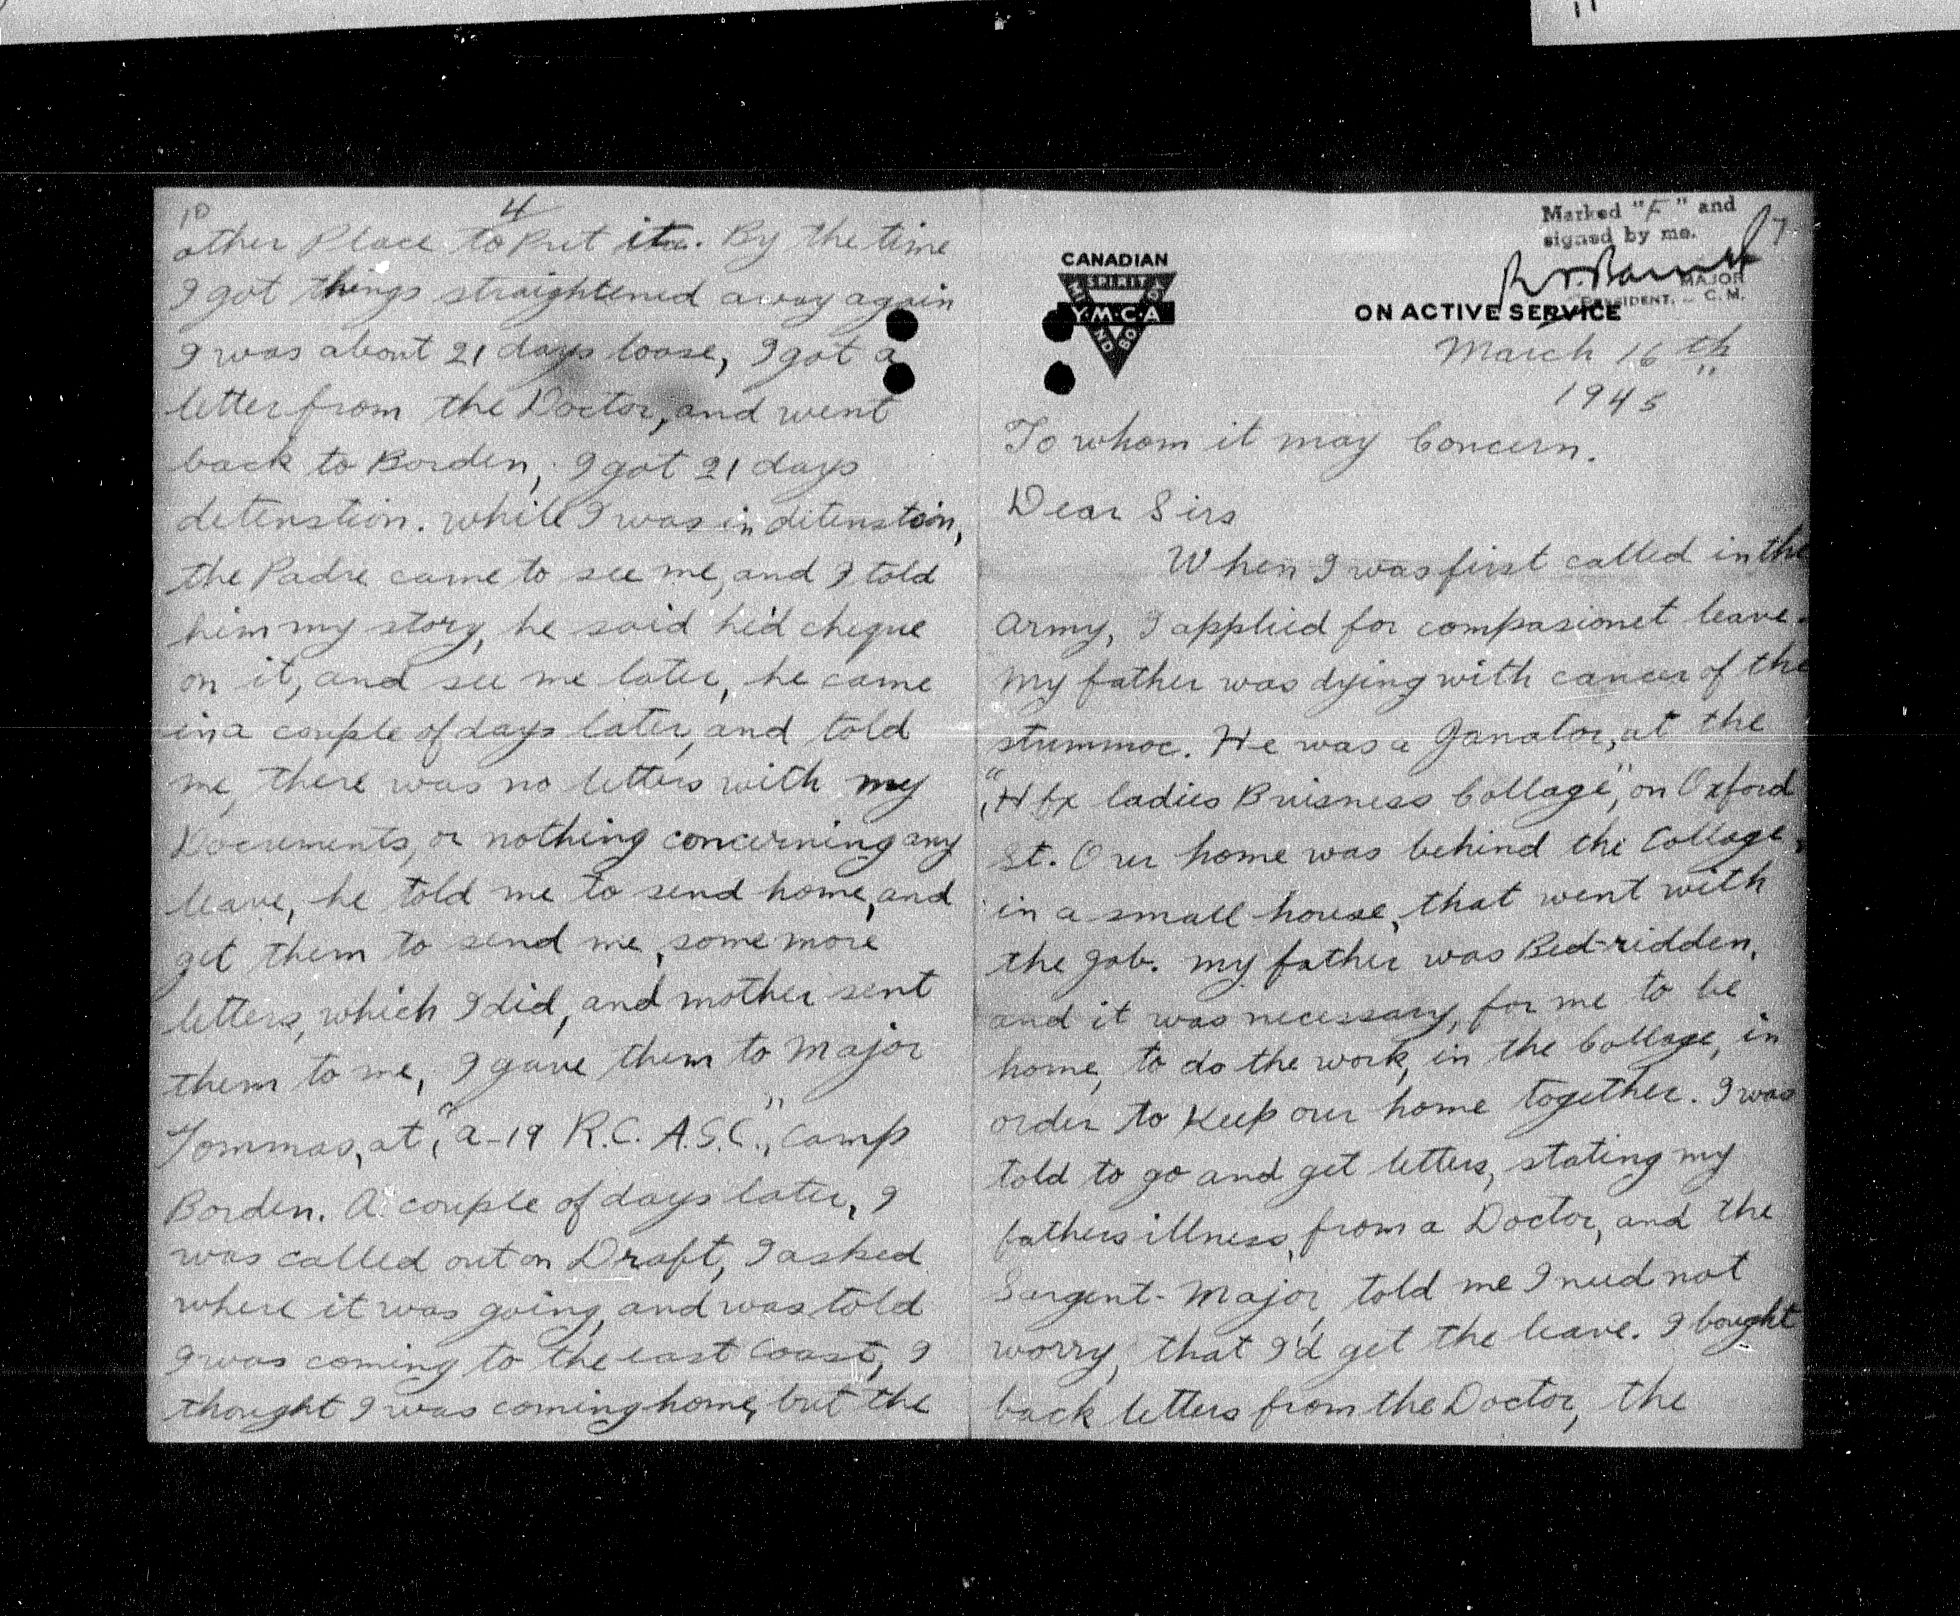 10
4
other Place to Put it. By the time
I got things straightened away again
I was about 21 days loose, I got a
letter from the Doctor, and went
back to Borden, I got 21 days
detenstion. while I was in ditenstoin,
the Padre came to see me, and I told
him my story, he said he'd cheque
on it, and see me later, he came
in a couple of days later, and told
me, there was no letters with my
Documents, or nothing concerning any
leave, he told me to send home, and
get them to send me, some more
letters, which I did, and mother sent
them to me, I gave them to Major
Tommas, at, "A-19 R.C. A.S.C.", Camp
Borden. A couple of days later, I
was called out on Draft, I asked
where it was going, and was told
I was coming to the east Coast, I
thought I was coming home, but the
Marked "F" and
signed by me.
MAJOR
PRESIDENT. C. M.
CANADIAN
SPIRIT
Y·M·C·A
MIND
BODY
ON ACTIVE SERVICE
March 16th
1945
To whom it may Concern.
Dear Sirs
When I was first called in the
Army, I applied for compasionet leave.
My father was dying with cancer of the
stummoc. He was a Janator, at the
"Hfx ladies Buisness Collage", on Oxford
St. Our home was behind the Collage,
in a small house, that went with
the job. My father was Bed-ridden,
and it was necessary, for me to be
home, to do the work, in the Collage, in
order to Keep our home together. I was
told to go and get letters, stating my
fathers illness, from a Doctor, and the
Sargent-Major, told me I need not
worry, that I'd get the leave. I bought
back letters from the Doctor, the